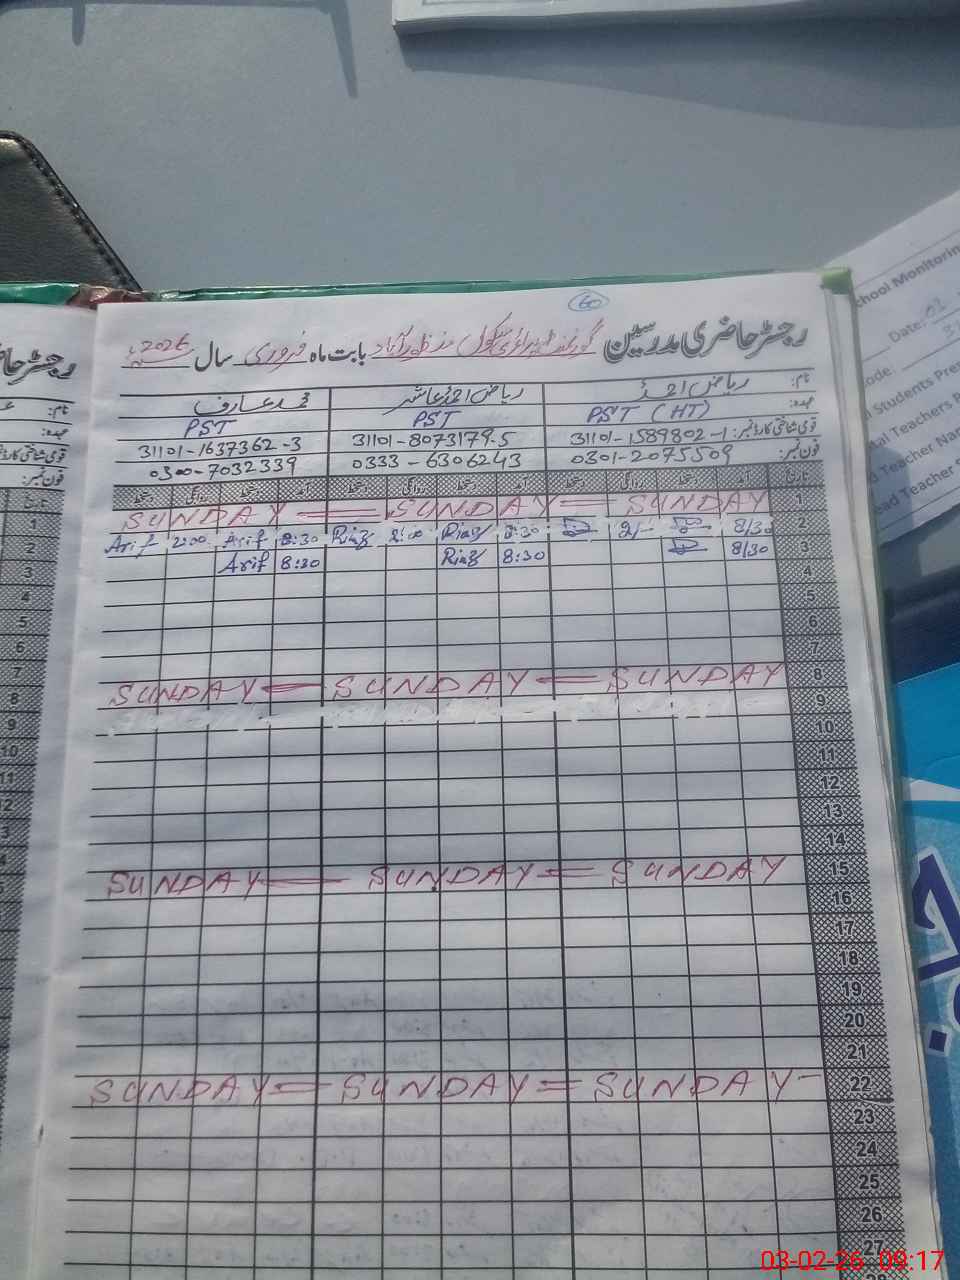 60
رجسٹر حاضری مدرسین گورنمنٹ پرائمری سکول منظور آباد بابت ماہ فروری سال 2026
نام: ریاض احمد ریاض احمد عاشر محمد عارف
عہدہ: PST (HT) PST PST
قومی شناختی کارڈ نمبر: 31101-1589802-1 31101-8073179-5 31101-1637362-3
فون نمبر: 0301-2075509 0333-6306243 0300-7032339
تاریخ آمد دستخط روانگی دستخط آمد دستخط روانگی دستخط آمد دستخط روانگی دستخط
1 SUNDAY = SUNDAY = SUNDAY
2 8/30 2/- 8:30 Riaz 2:00 Riaz 8:30 Arif 2:00 Arif
3 8/30 8:30 Riaz 8:30 Arif
4
5
6
7
8 SUNDAY = SUNDAY = SUNDAY
9
10
11
12
13
14
15 SUNDAY = SUNDAY = SUNDAY
16
17
18
19
20
21
22 SUNDAY = SUNDAY = SUNDAY
23
24
25
26
27
رجسٹر حاضری
نام:
عہدہ:
قومی شناختی کارڈ
فون نمبر:
1
2
3
4
5
6
7
8
9
10
11
12
13
School Monitoring
Date: 02
Code:
Students Pre
Teachers P
Teacher Nam
Head Teacher S
03-02-26 09:17